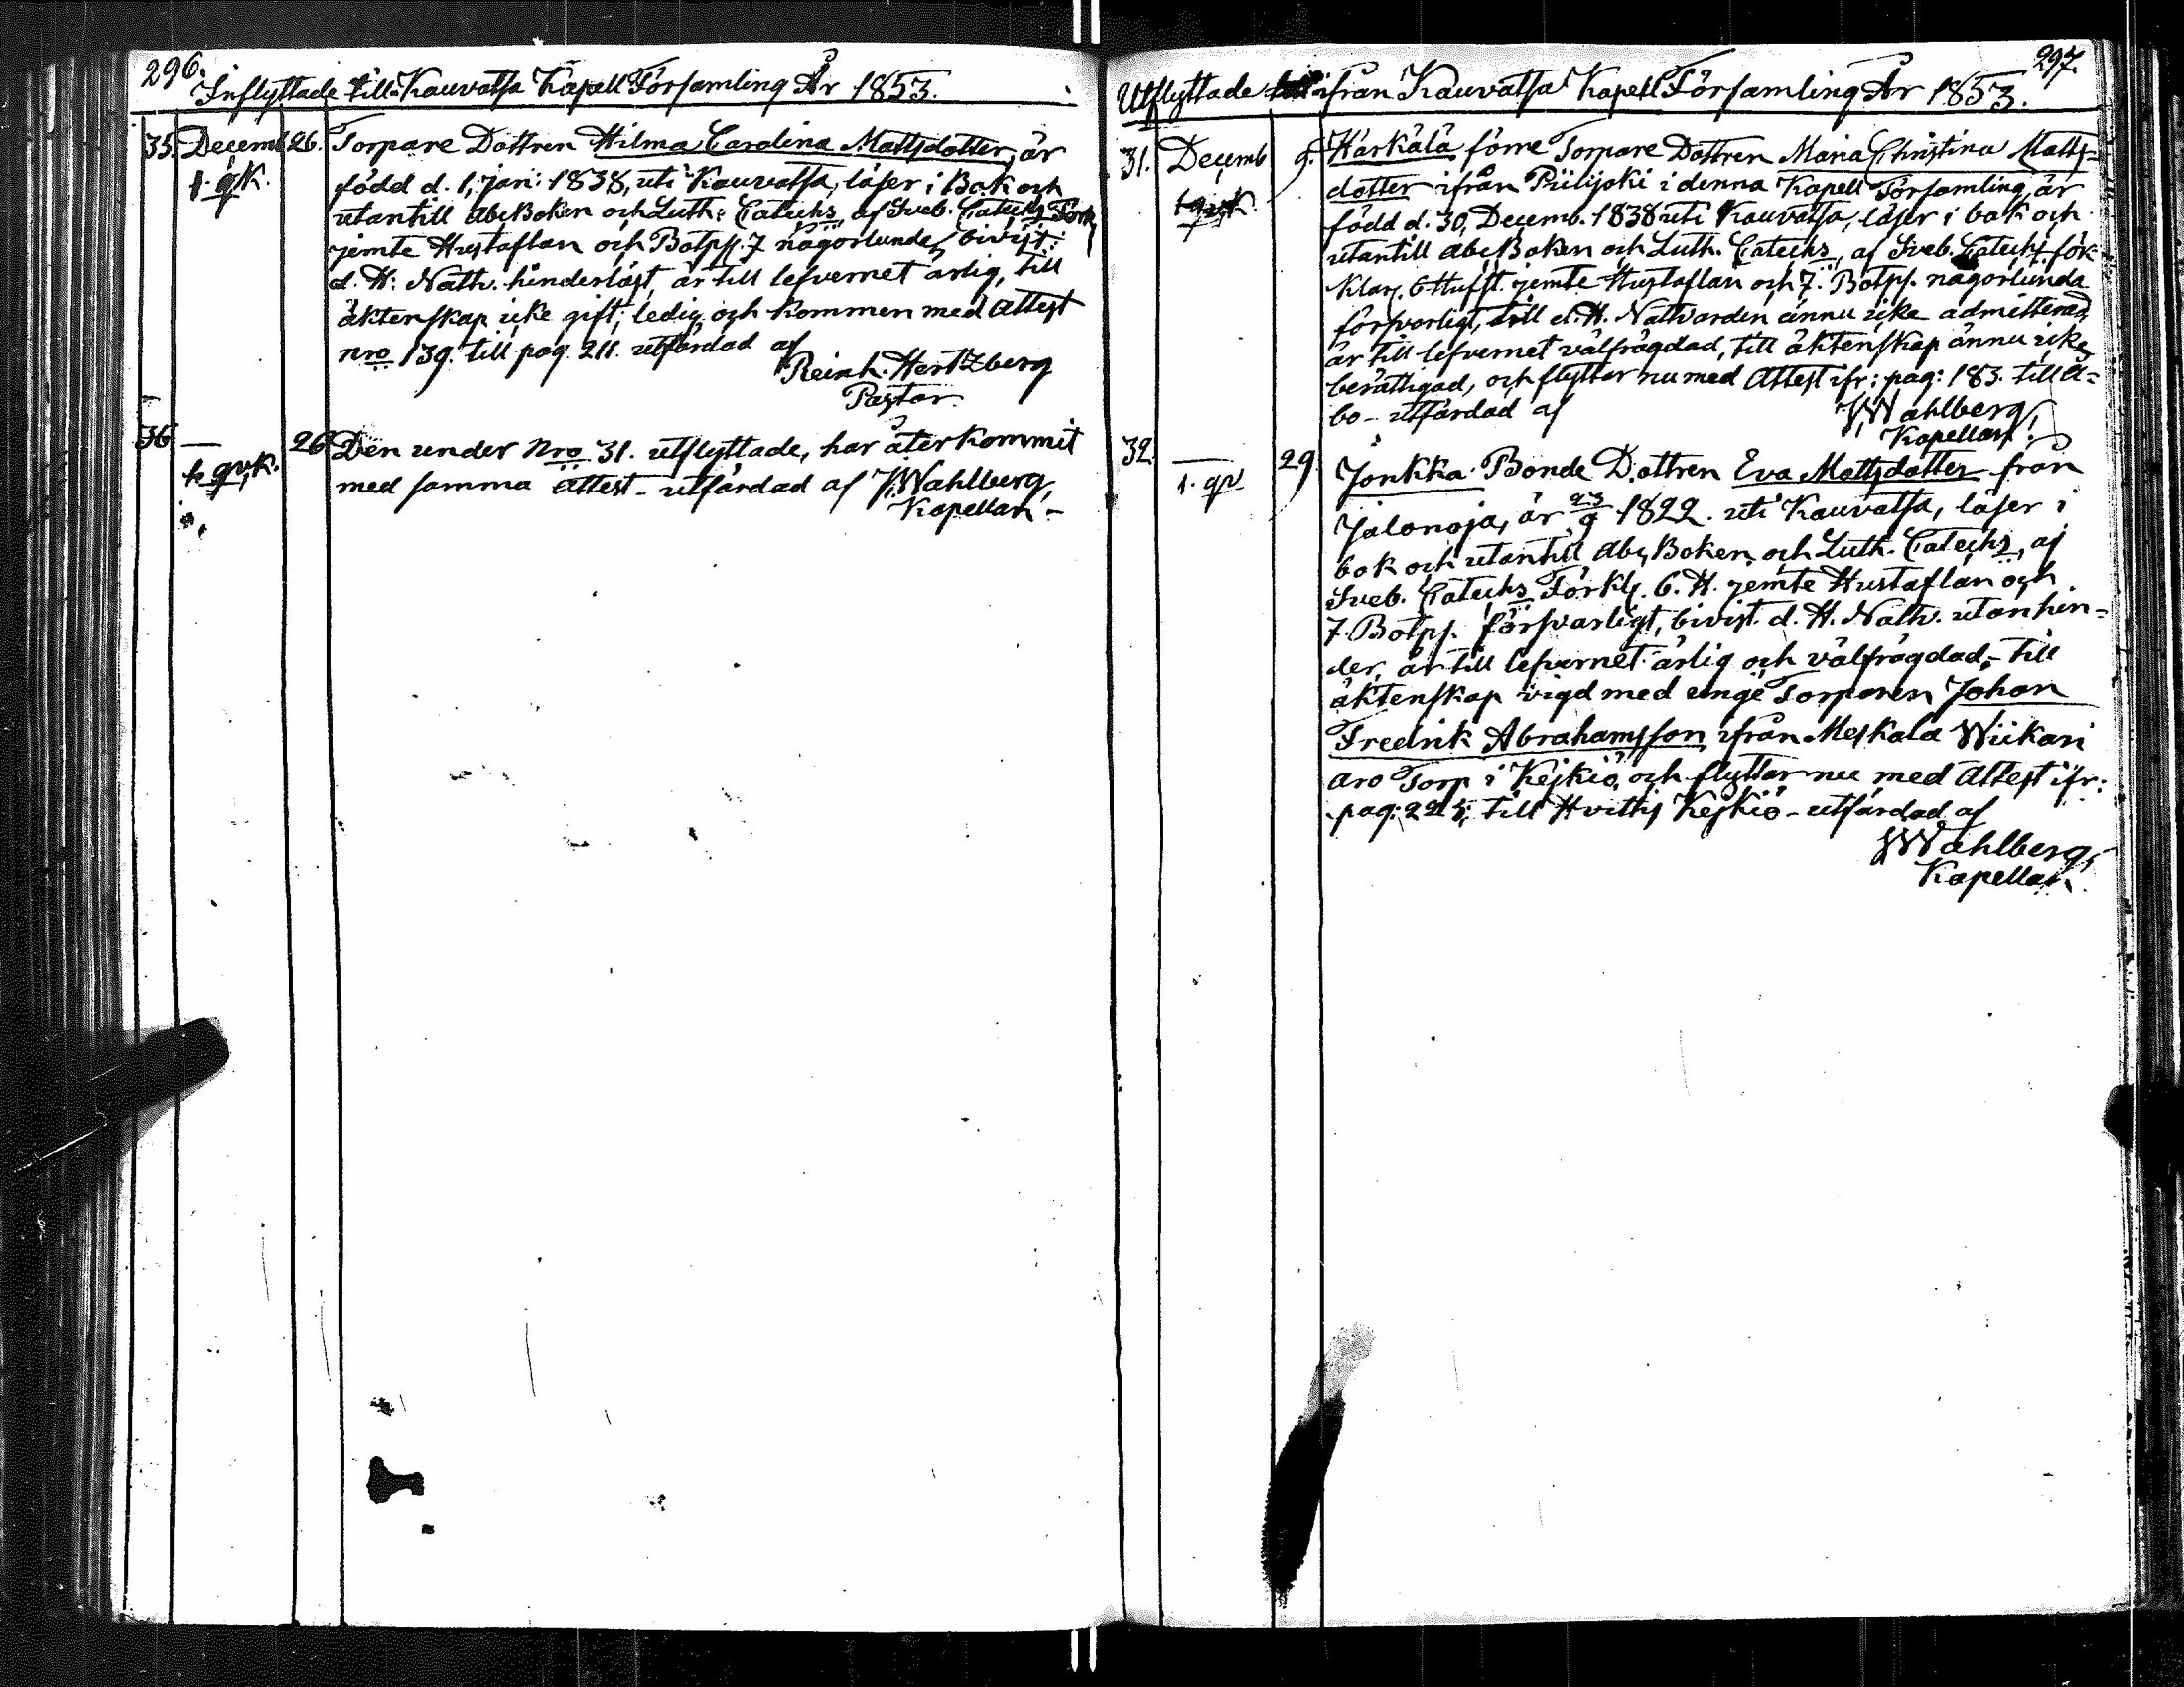 296.
Inflyttade till Kauvatsa Kapell Församling År 1853.
35. Decemb 26. Torpare Dottren Hilma Carolina Mattsdotter, är
1. qk. född d. 1, jan: 1838, uti Kauvatsa, läser i Bok och
utantill Abc Boken och Luth: Catechs, af Sveb. Catechs Förk
jemte Hustaflan och Botps. 7 någorlunda, bivist:
d. H: Nath. hinderlöst, är till lefvernet ärlig, till
äktenskap icke gift; ledig och kommen med attest
nro 139. till pag 211. utfärdad af
Reinh. Hertzberg
Pastor.
36 — 26 Den under Nro 31. utflyttade, har återkommit
qvk. med samma Attest – utfärdad af J. Wahlberg,
Kapellan –
297.
Utflyttade ifrån Kauvatsa Kapell Församling År 1853.
31. Decemb 9. Härkälä förre Torpare Dottren Maria Christina Matts-
1 qvk. dotter ifrån Piilijoki i denna Kapell Församling, är
född d. 30, Decemb. 1838 uti Kauvatsa, läser i bok och
utantill Abc Boken och Luth. Catechs, af Sveb. Catechs. för-
klar. 6 Hufst. jemte Hustaflan och 7. Botps. någorlunda
försvarligt, till d. H. Nattvarden ännu icke admitterad,
är till lefvernet välfrägdad, till äktenskap ännu icke
berättigad, och flyttar nu med Attest ifr: pag: 183. till Å-
bo – utfärdad af
J. Wahlberg,
Kapellan.
32. — 29. Jonkka Bonde Dottren Eva Mattsdotter från
1. qv Jalonoja, är 23/9 1822. uti Kauvatsa, läser i
bok och utantill Abc Boken och Luth. Catechs, af
Sveb. Catechs Förkl. 6. H. jemte Hustaflan och
7. Botps. försvarligt, bivist. d. H. Nath. utan hin-
der, är till lefvernet ärlig och välfrägdad, – till
äktenskap vigd med enge Torparen Johan
Fredrik Abrahamsson ifrån Meskala Wiikari
aro Torp i Kejkiö, och flyttar nu med Attest ifr:
pag: 225, till Hvittis Kejkiö – utfärdad af
J Wahlberg,
Kapellan.